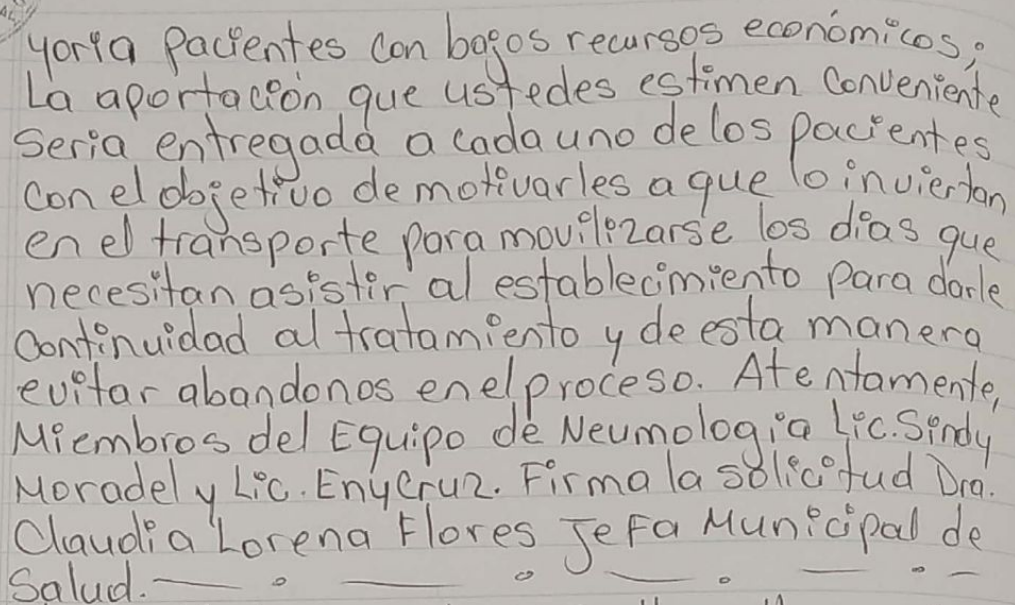 yoria pacientes con bajos recursos económicos;
La aportación que ustedes estimen conveniente
seria entregada a cada uno de los pacientes
con el objetivo de motivarles a que lo inviertan
en el transporte para movilizarse los días que
necesitan asistir al establecimiento para darle
continuidad al tratamiento y de esta manera
evitar abandonos en el proceso. Atentamente,
Miembros del Equipo de Neumologia Lic. Sindy
Moradel y Lic. Eny Cruz. Firma la solicitud Dra.
Claudia Lorena Flores Jefa Municipal de
Salud.